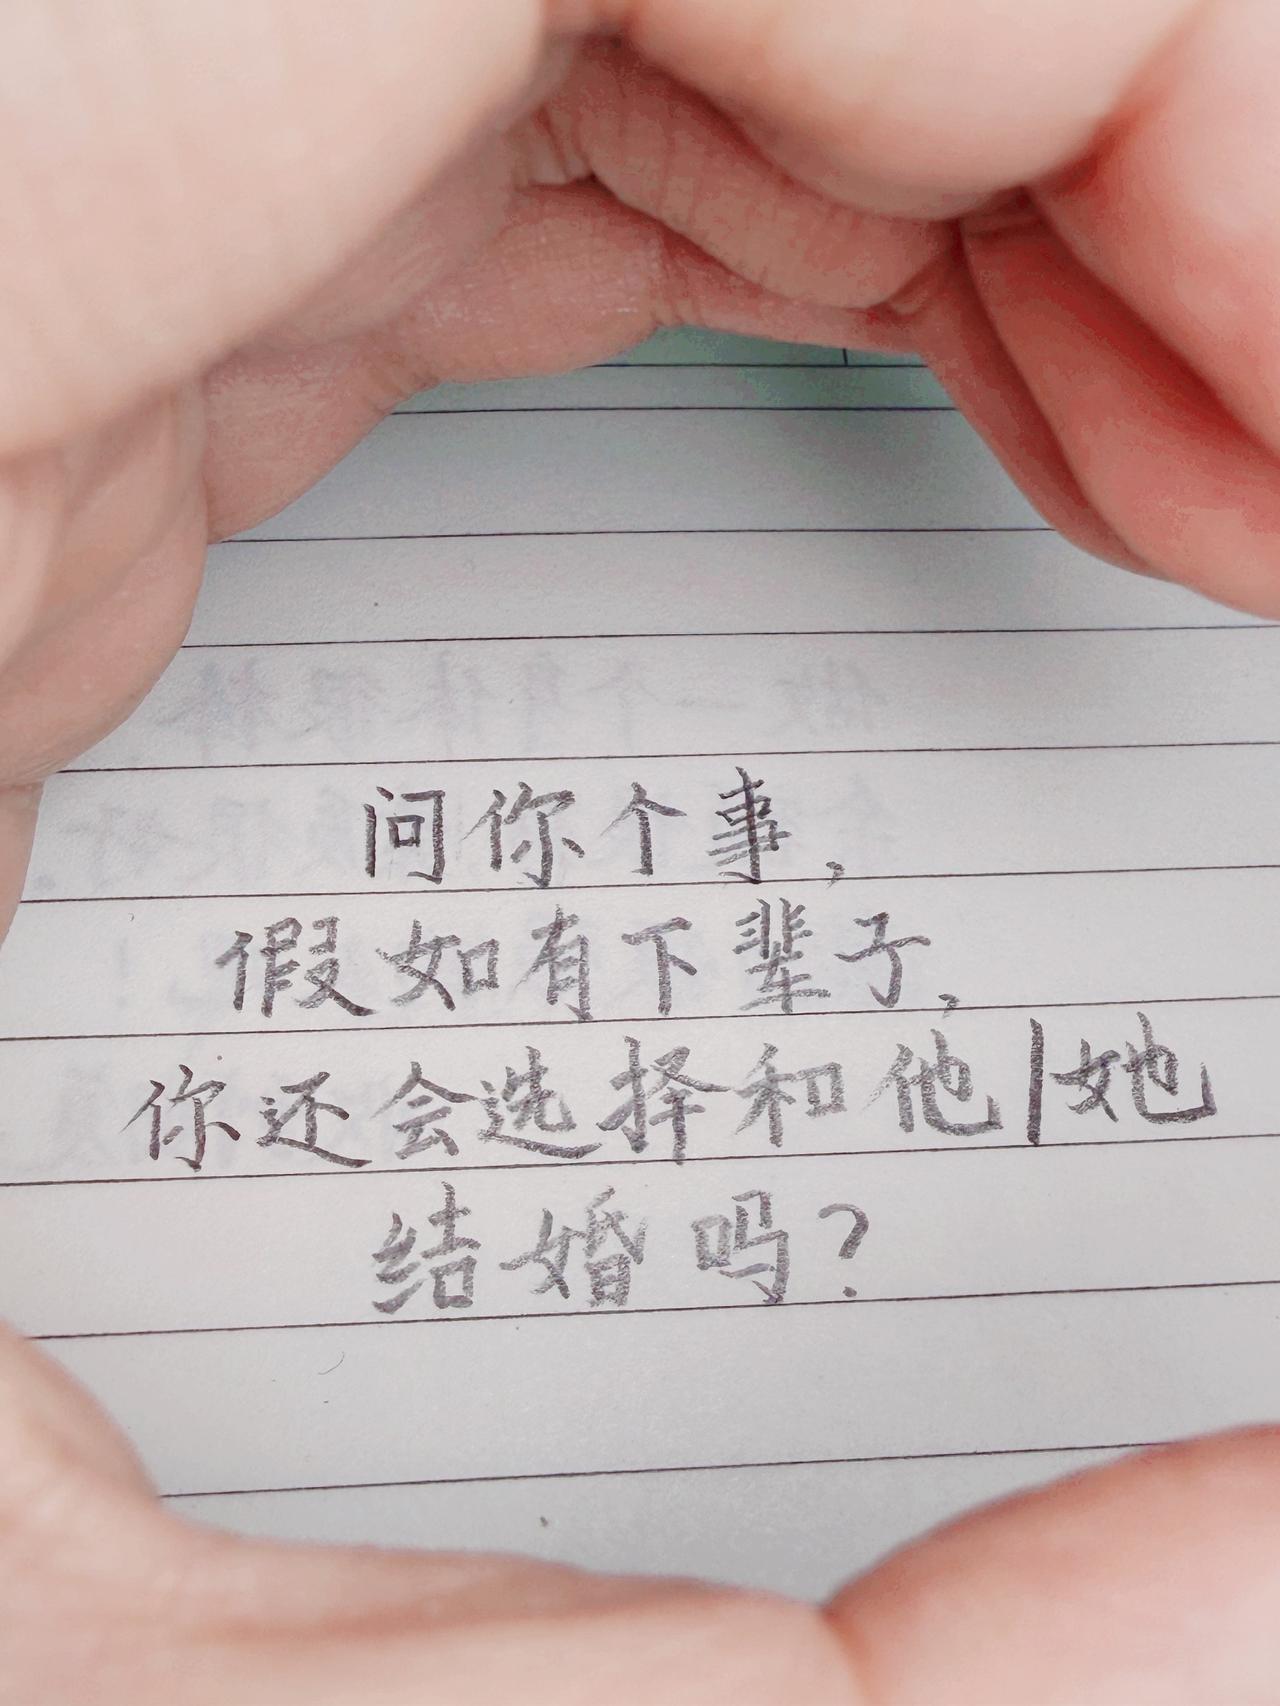 问你个事，
假如有下辈子，
你还会选择和他|她
结婚吗？